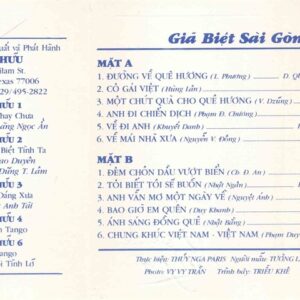 uất vi Phát Hành
HỮU
ilam St.
exas 77006
29/495-2822
ƯU 1
hay Chưa
àng Ngọc Ẩn
ƯU 2
Biết Tình Ta
ao Duyên
Dũng T. Lâm
ƯU 3
Dáng Xưa
Anh Tài
ƯU 4
n Tango
ƯU 6
ango
i Tình Lỡ
Giã Biệt Sài Gòn
MẶT A
1. ĐƯỜNG VỀ QUÊ HƯƠNG (L. Phương) D. Q
2. CÔ GÁI VIỆT (Hùng Lân)
3. MỘT CHÚT QUÀ CHO QUÊ HƯƠNG (V. Dzũng)
4. ANH ĐI CHIẾN DỊCH (Phạm Đ. Chương)
5. VỀ ĐI ANH (Khuyết Danh)
6. VỀ MÁI NHÀ XƯA (Nguyễn V. Đông)
MẶT B
1. ĐÊM CHÔN DẦU VƯỢT BIỂN (Ch. Đ. An)
2. TÔI BIẾT TÔI SẼ BUỒN (Nhật Ngân)
3. ANH VẪN MƠ MỘT NGÀY VỀ (Nguyệt Ánh)
4. BAO GIỜ EM QUÊN (Duy Khánh)
5. ÁNH SÁNG ĐỒNG QUÊ (Nhật Bằng)
6. CHUNG KHÚC VIỆT NAM - VIỆT NAM (Phạm Duy)
Thực hiện: THÚY NGA PARIS Người mẫu: TƯỜNG L
Photo: VY VY TRẦN Trình bày: TRIỀU KHÊ